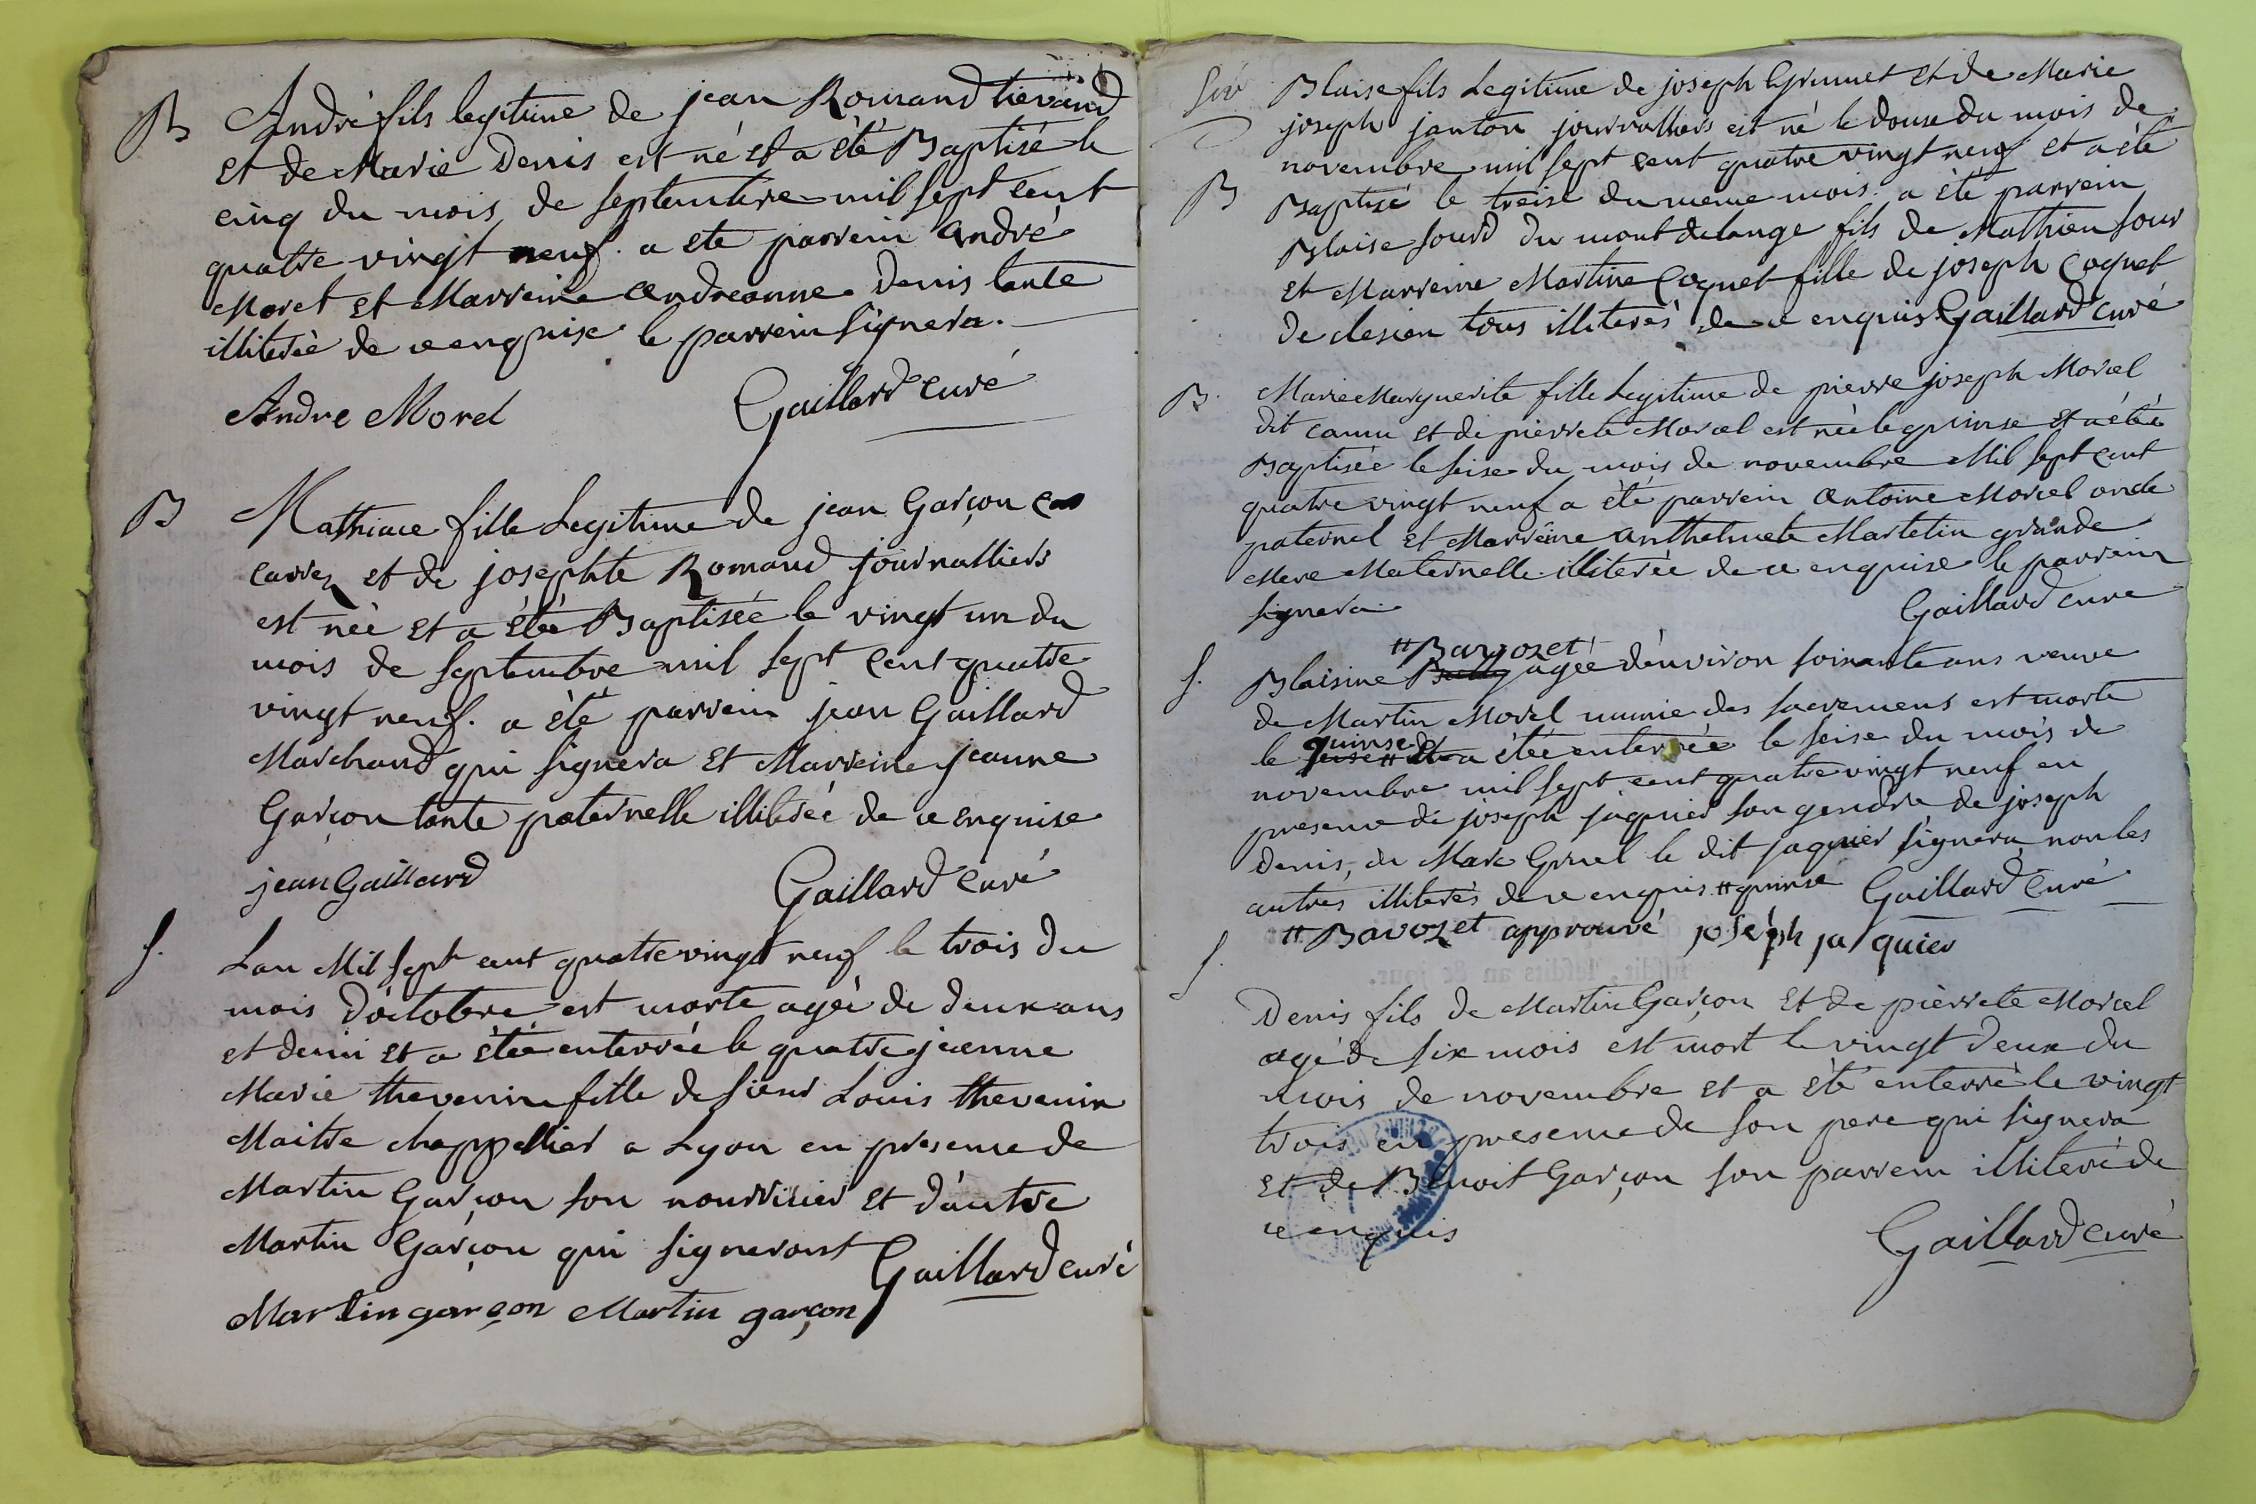 B André fils legitime de jean Romand
et de Marie Denis est né et a été Baptisé le
cinq du mois de septembre mil sept cent
quatre vingt neuf. a ete parrein André
Morel et Marreine andreanne Denis tante
illiterée de ce enquise le parrein signera.
Andre Morel Gaillard curé
B Mathiace fille Legitime de jean Garçon
carrez et de josephte Romand journalliers
est née et a étée Baptisée le vingt un du
mois de septembre mil sept cent quatre
vingt neuf. a été parrein jean Gaillard
Marchand qui signera et Marreine jeanne
Garçon tante paternelle illiterée de ce enquise
jean Gaillard Gaillard curé
s. Lan Mil sept cent quatre vingt neuf le trois du
mois d'octobre est morte agée de deux ans
et demi et a étée enterrée le quatre jeanne
Marie thevenin fille de sieur Louis thevenin
Maitre chappellier a Lyon en presence de
Martin Garçon son nourricier et d'autre
Martin Garçon qui signeront Gaillard curé
Martin garçon Martin garçon
Blaise fils Legitime de joseph Grumet et de Marie
joseph janton journalliers est né le douze du mois de
novembre mil sept cent quatre vingt neuf et a été
B Baptisé le treise du meme mois. a été parrein
Blaise sourd du mont delange fils de Mathieu sour
et Marreine Martine Coquet fille de joseph Coquet
de clesieu tous illiterés de ce enquis Gaillard curé
B. Marie Marguerite fille Legitime de pierre joseph Morel
dit camu et de pierrete Morel est née le quinse et a étée
Baptisée le seise du mois de novembre Mil sept cent
quatre vingt neuf a été parrein antoine Morel oncle
paternel et Marreine anthelmete Martetin grande
Mere Maternelle illiterée de ce enquise le parrein
signera. Gaillard cure
# Bavozet
s. Blaisine agée d'environ soixante ans veuve
de Martin Morel munie des sacremens est morte
quinse
le seise # et a étée enterrée le seise du mois de
novembre mil sept cent quatre vingt neuf en
presence de joseph jaquier son gendre de joseph
denis, de Marc Gruel le dit jaquier signera non les
autres illiterés de ce enquis # quinse Gaillard curé
# Bavozet approuvé joseph jaquier
s. Denis fils de Martin Garçon et de pierrete Morel
agé de six mois est mort le vingt deux du
mois de novembre et a été enterré le vingt
trois en presence de son pere qui signera
et de Benoit Garçon son parrein illiteré de
ce enquis
Gaillard curé